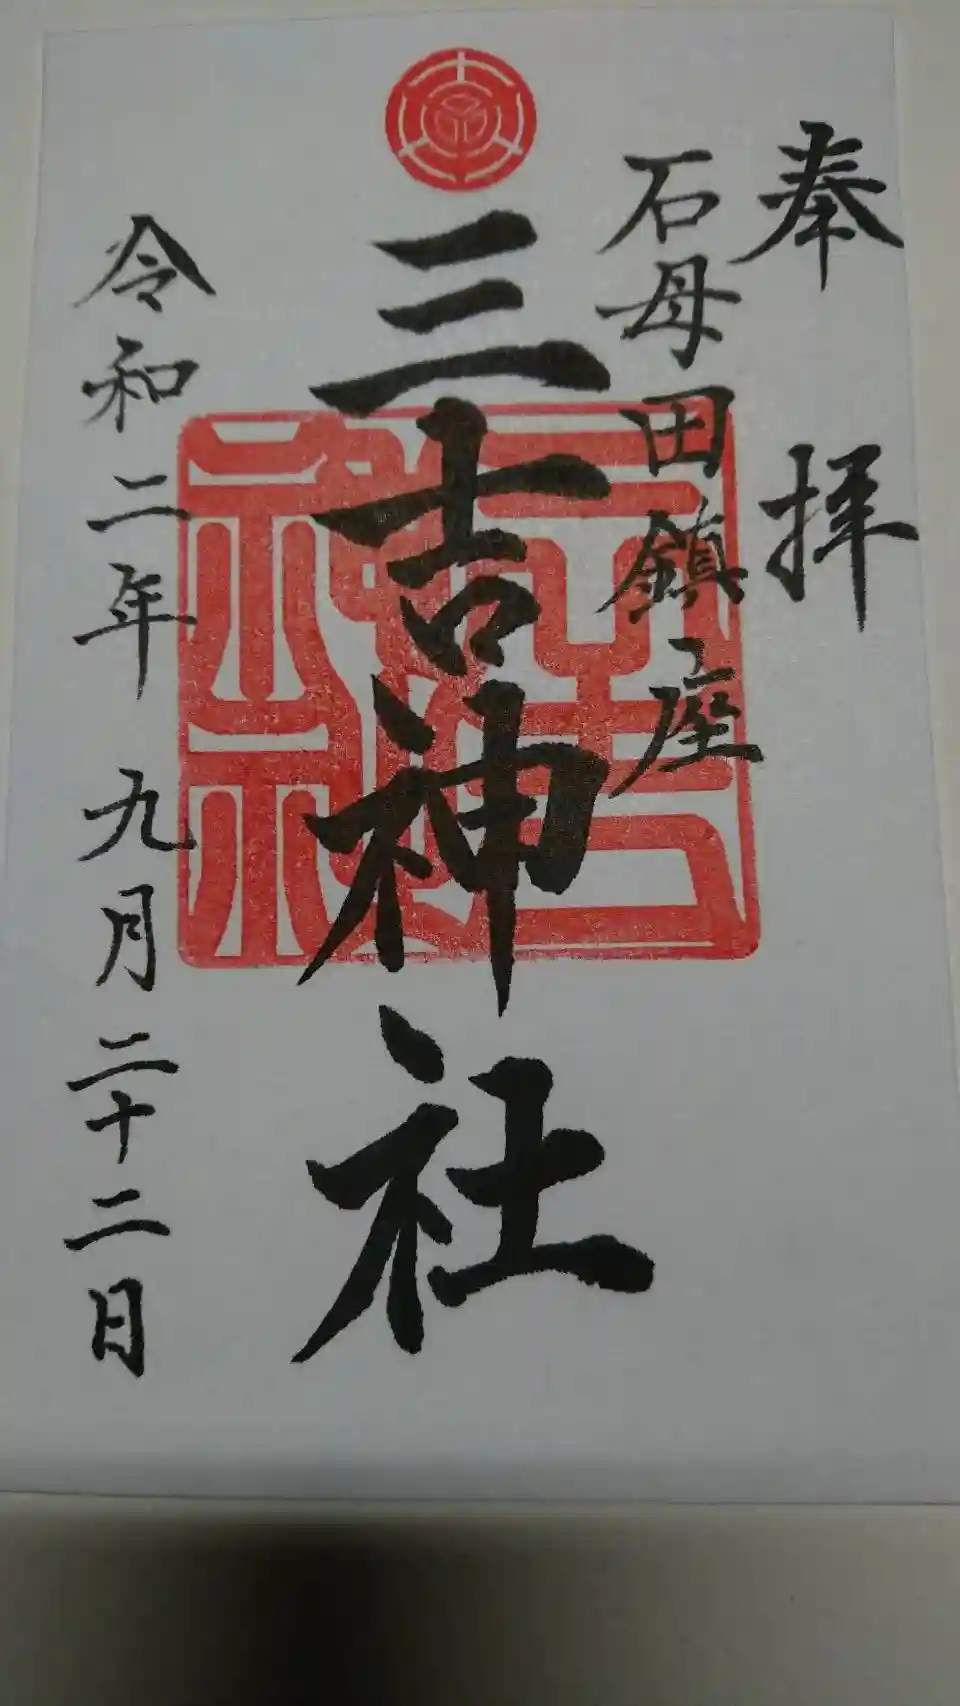 奉拝
石母田鎮座
三吉神社
三吉神社
令和二年九月二十二日